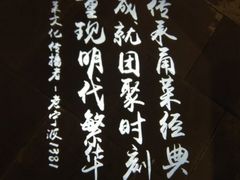 传承甬菜经典
成就团聚时刻
重现明代繁华
文化传播者－老宁波1381